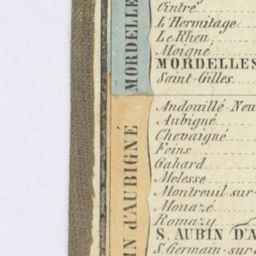 Cintré
L'Hermitage
Le Rheu
Moigné
MORDELLES
Saint-Gilles
Andouillé-Neu
Aubigné
Chevaigné
Feins
Gahard
Melesse
Montreuil-sur-
Mouazé
Romazy
S. AUBIN D'A
S. Germain-sur-
MORDELLE
IN D'AUBIGNÉ